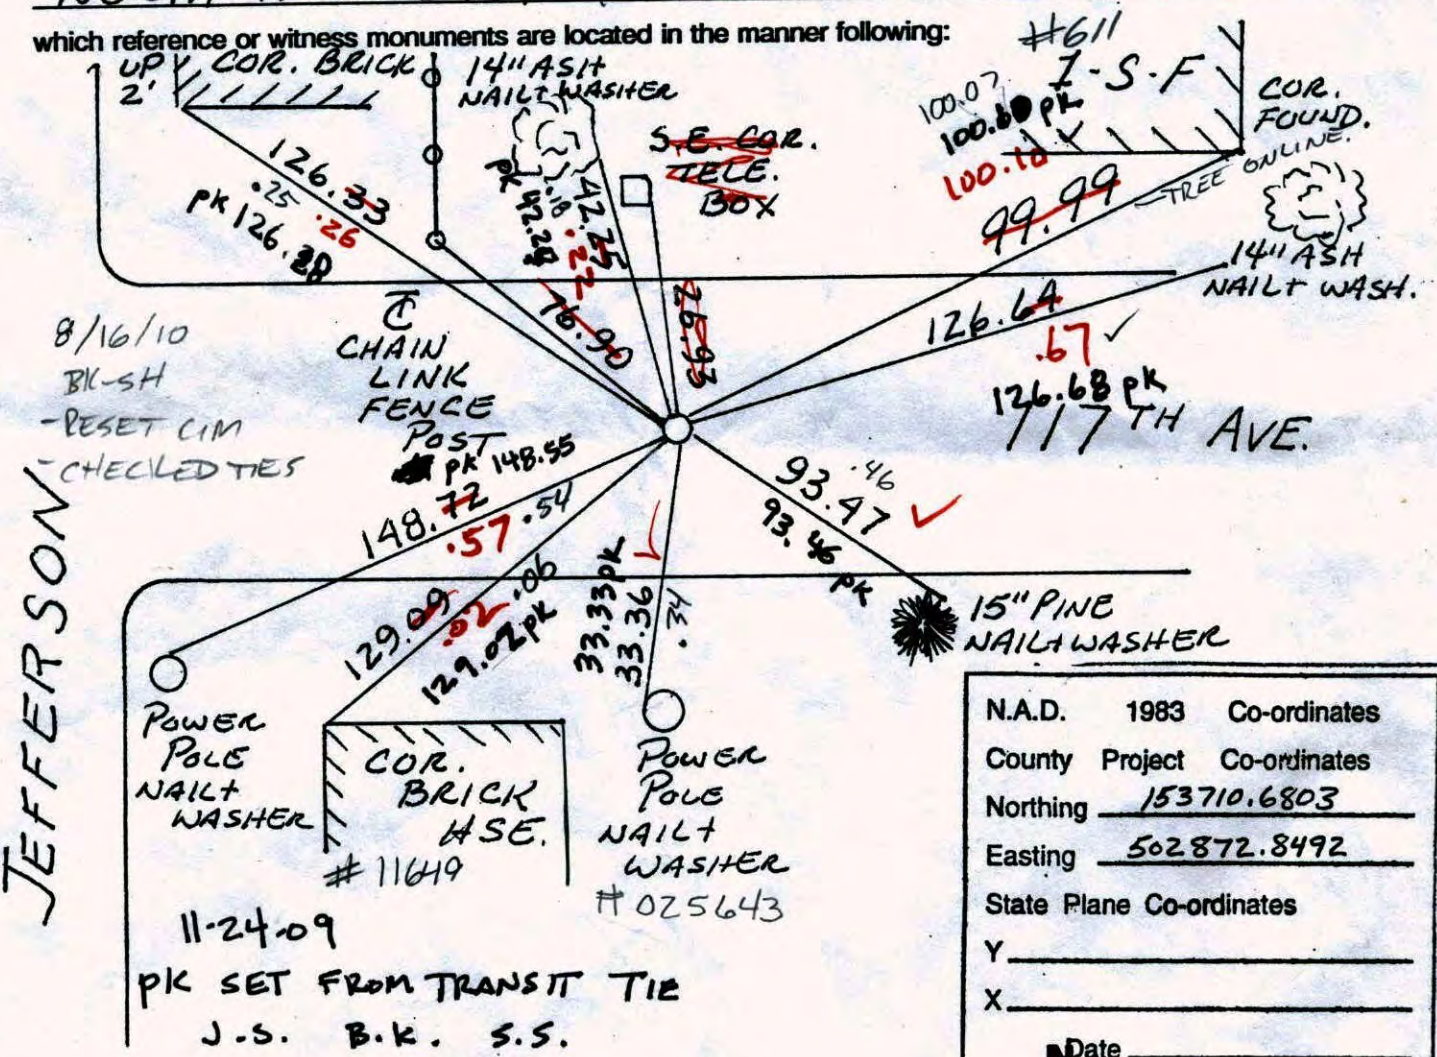 which reference or witness monuments are located in the manner following:
#611
UP 2'
COR. BRICK
14" ASH
NAIL+WASHER
S.E. COR.
TELE.
BOX
1-S-F
COR.
FOUND.
TREE ONLINE.
100.07
pk
100.10
99.99
14" ASH
NAIL+ WASH.
126.33
.25
.26
pk 126.
42.25
.18
.22
pk 42.
76.90
26.93
126.64
.67
126.68 pk
117TH AVE.
8/16/10
BK-SH
-RESET CIM
-CHECKED TIES
CHAIN
LINK
FENCE
POST
pk 148.55
148.72
.57
.54
129.09
.02
.06
129.02 pk
33.33 pk
33.36
.34
93.47
.46
93.46 pk
15" PINE
NAIL+WASHER
JEFFERSON
POWER
POLE
NAIL+
WASHER
COR.
BRICK
HSE.
#11649
POWER
POLE
NAIL+
WASHER
#025643
11-24-09
pk SET FROM TRANSIT TIE
J.S. B.K. S.S.
N.A.D. 1983 Co-ordinates
County Project Co-ordinates
Northing 153710.6803
Easting 502872.8492
State Plane Co-ordinates
Y
X
Date